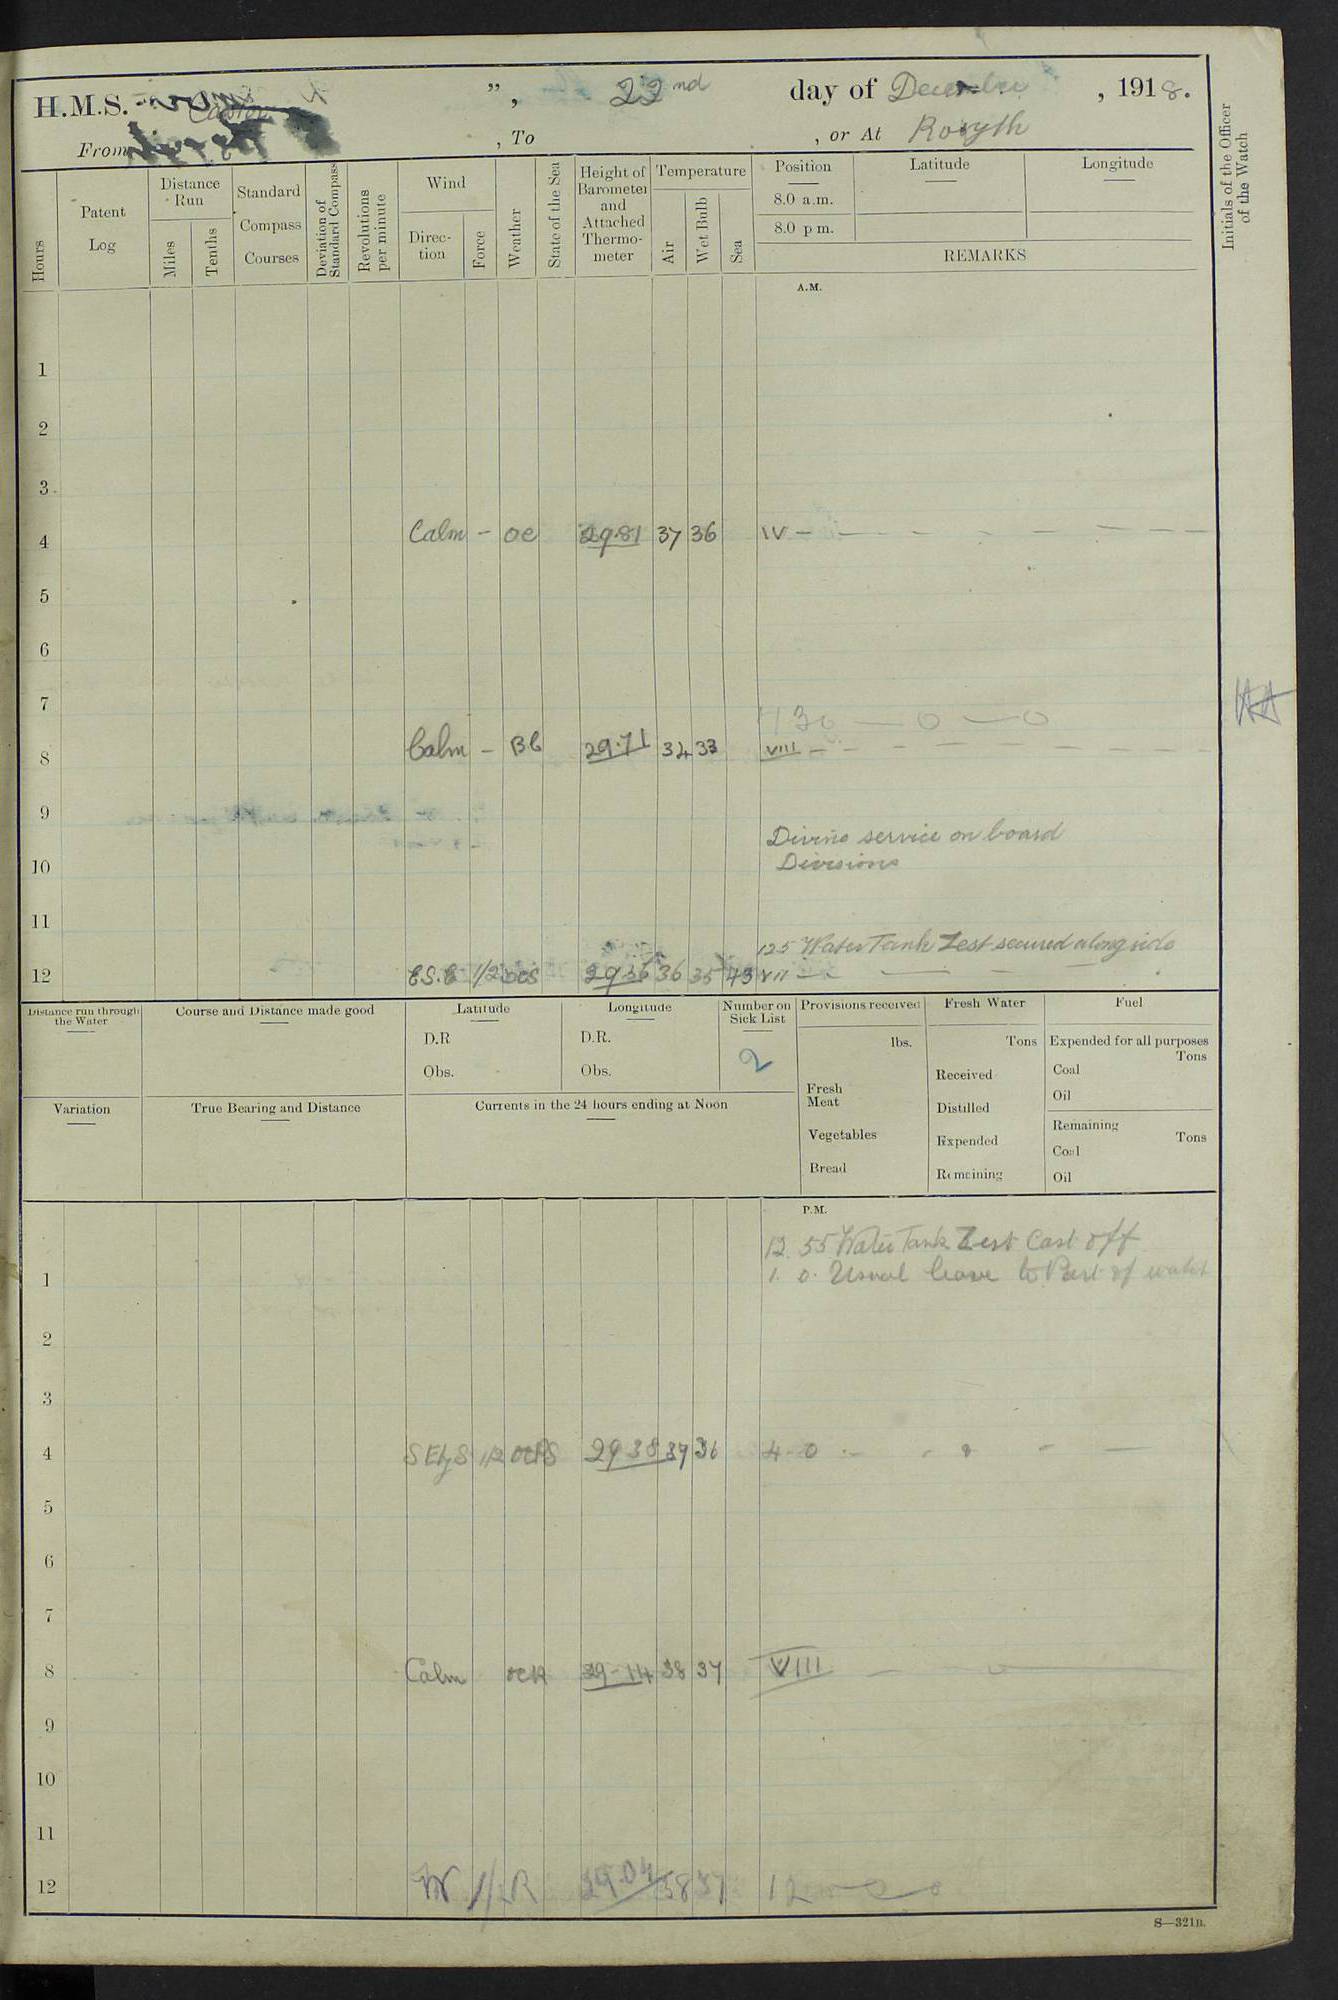 H.M.S. Castor ", 22nd day of December, 1918.
From , To , or At Rosyth
Hours
Patent Log
Distance Run
Miles
Tenths
Standard Compass Courses
Deviation of Standard Compass
Revolutions per minute
Wind
Direction
Force
Weather
State of the Sea
Height of Barometer and Attached Thermometer
Temperature
Air
Wet Bulb
Sea
Position
8.0 a.m.
8.0 p m.
Latitude
Longitude
REMARKS
Initials of the Officer of the Watch
A.M.
1
2
3
4 Calm - oc 29.81 37 36 IV -
5
6
7
7 30 — 0 — 0
8 Calm - BC 29.71 34 33 VIII -
9
Divine service on board
10 Divisions
11
12 5 Water Tank Zest secured alongside
12 1/2 29 36 36 35 43
Distance run through the Water
Course and Distance made good
Latitude
D.R
Obs.
Longitude
D.R.
Obs.
Number on Sick List
2
Provisions received
lbs.
Fresh Meat
Vegetables
Bread
Fresh Water
Tons
Received
Distilled
Expended
Remaining
Fuel
Expended for all purposes
Tons
Coal
Oil
Remaining
Tons
Coal
Oil
Variation
True Bearing and Distance
Currents in the 24 hours ending at Noon
P.M.
12. 55 Water Tank Zest Cast off
1 1. 0. Usual leave to Part of watch
2
3
4 SEbyS 1/2 29 38 37 36 4-0
5
6
7
8 Calm ocR 29-14 38 37 VIII
9
10
11
12 1/2 R 29.04 38 37 12
S—321B.